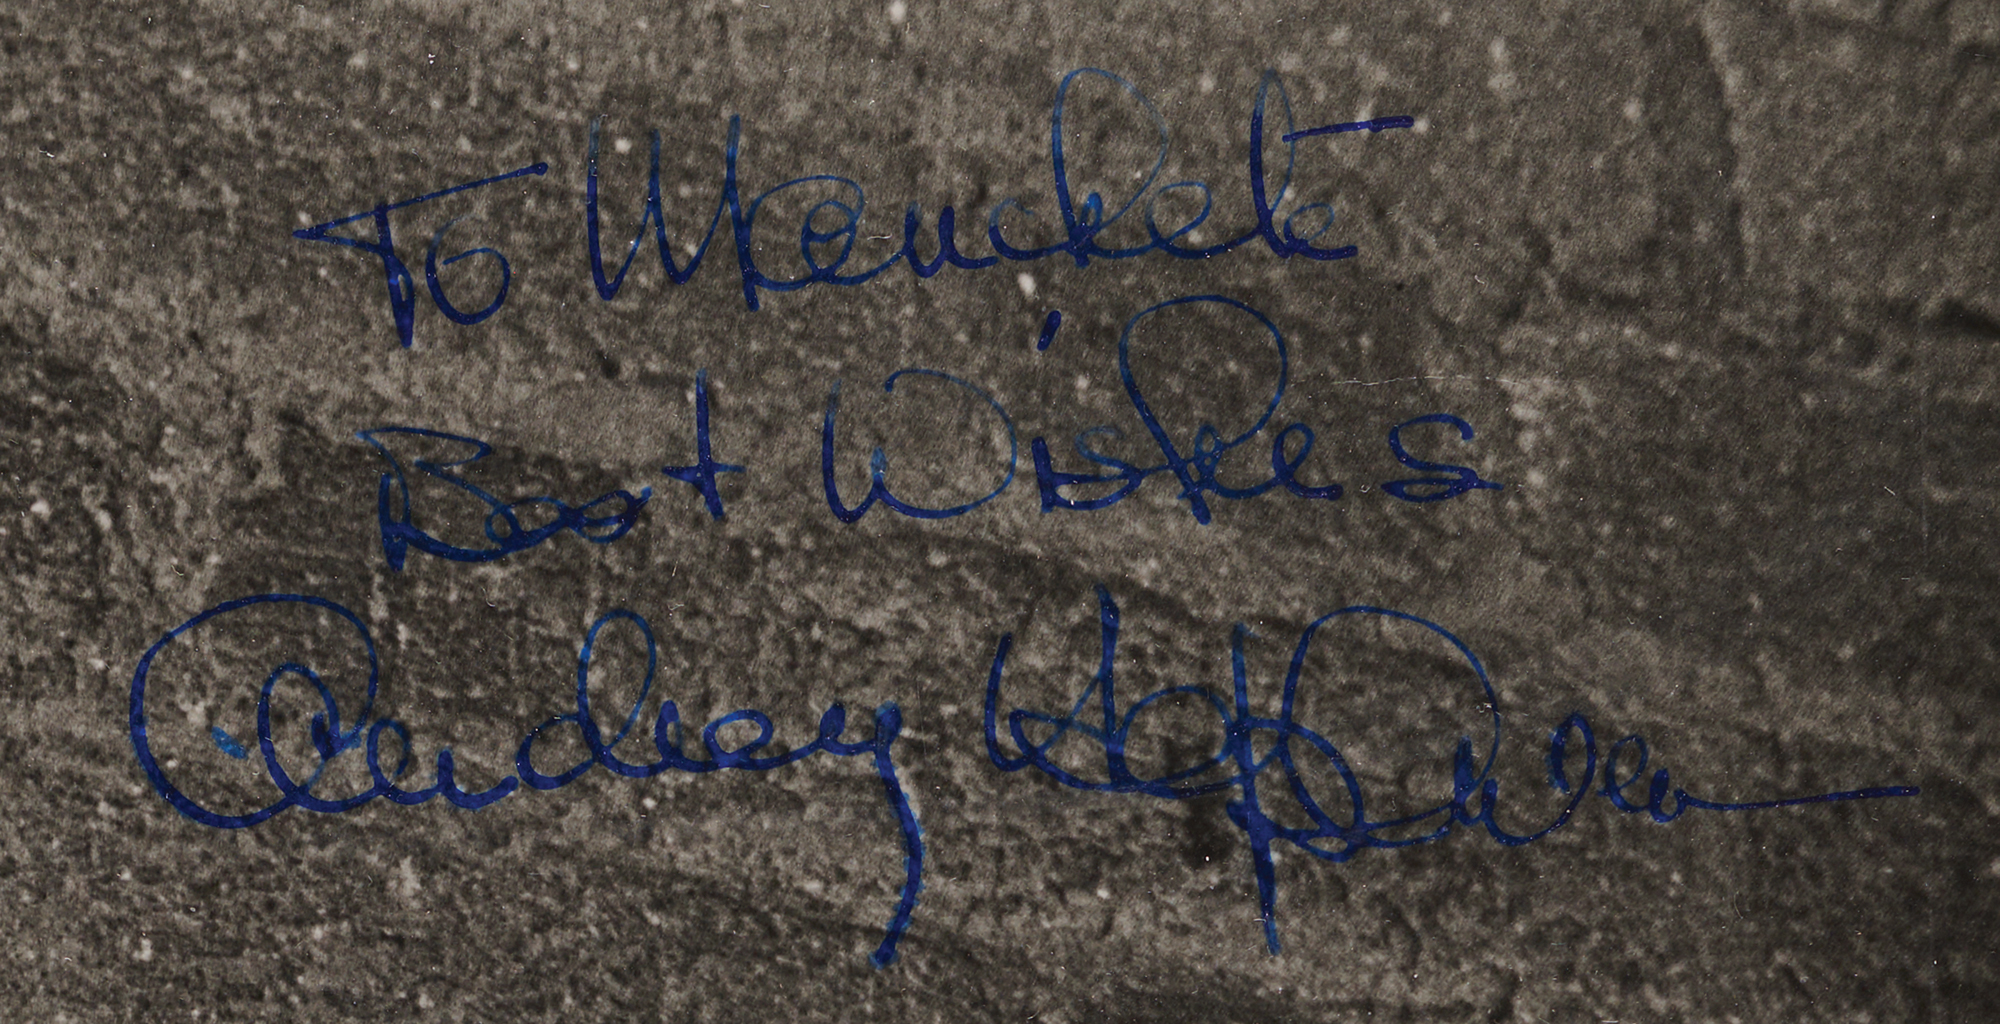 To Manchete
Best Wishes
Audrey Hepburn